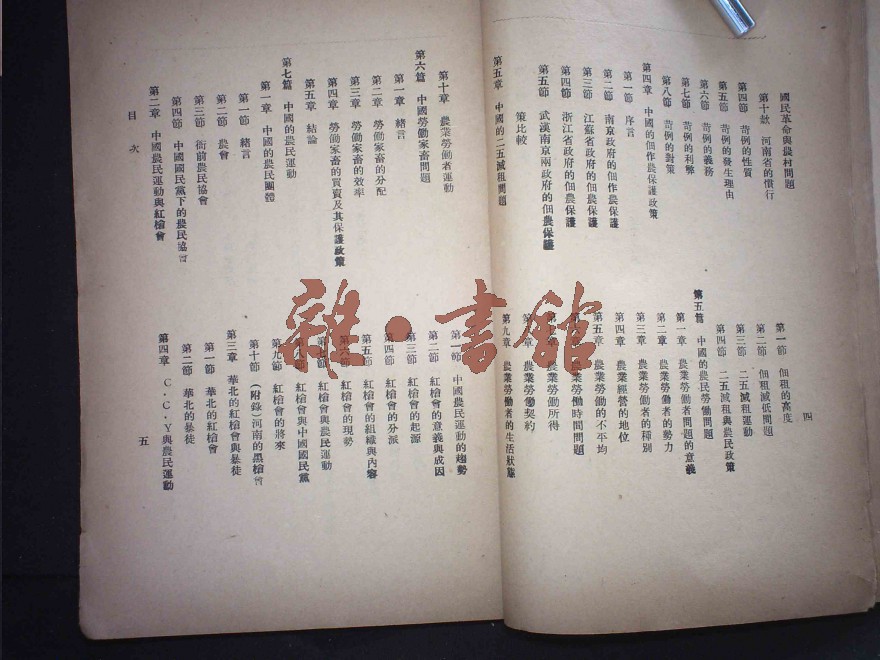 國民革命與農村問題
第十款 河南省的慣行
第四節 苛例的性質
第五節 苛例的發生理由
第六節 苛例的義務
第七節 苛例的利弊
第八節 苛例的對策
第四章 中國的佃作農保護政策
第一節 序言
第二節 南京政府的佃作農保護
第三節 江蘇省政府的佃農保護
第四節 浙江省政府的佃農保護
第五節 武漢南京兩政府的佃農保護
策比較
第五章 中國的二五減租問題
第一節 佃租的高度
第二節 佃租減低問題
第三節 二五減租運動
第四節 二五減租與農民政策
第五篇 中國的農民勞働問題
第一章 農業勞働者問題的意義
第二章 農業勞働者的勢力
第三章 農業勞働者的種別
第四章 農業經營的地位
第五章 農業勞働的不平均
第六章 農業勞働時間問題
第七章 農業勞働所得
第八章 農業勞働契約
第九章 農業勞働者的生活狀態
四
第十章 農業勞働者運動
第六篇 中國勞働家畜問題
第一章 緒言
第二章 勞働家畜的分配
第三章 勞働家畜的效率
第四章 勞働家畜的買賣及其保護政策
第五章 結論
第七篇 中國的農民運動
第一章 中國的農民團體
第一節 緒言
第二節 農會
第三節 衙前農民協會
第四節 中國國民黨下的農民協會
第二章 中國農民運動與紅槍會
目次
第一節 中國農民運動的趨勢
第二節 紅槍會的意義與成因
第三節 紅槍會的起源
第四節 紅槍會的分派
第五節 紅槍會的組織與內容
第六節 紅槍會的現勢
第七節 紅槍會與農民運動
第八節 紅槍會與中國國民黨
第九節 紅槍會的將來
第十節 (附錄)河南的黑槍會
第三章 華北的紅槍會與暴徒
第一節 華北的紅槍會
第二節 華北的暴徒
第四章 C.C.Y與農民運動
五
雜·書館